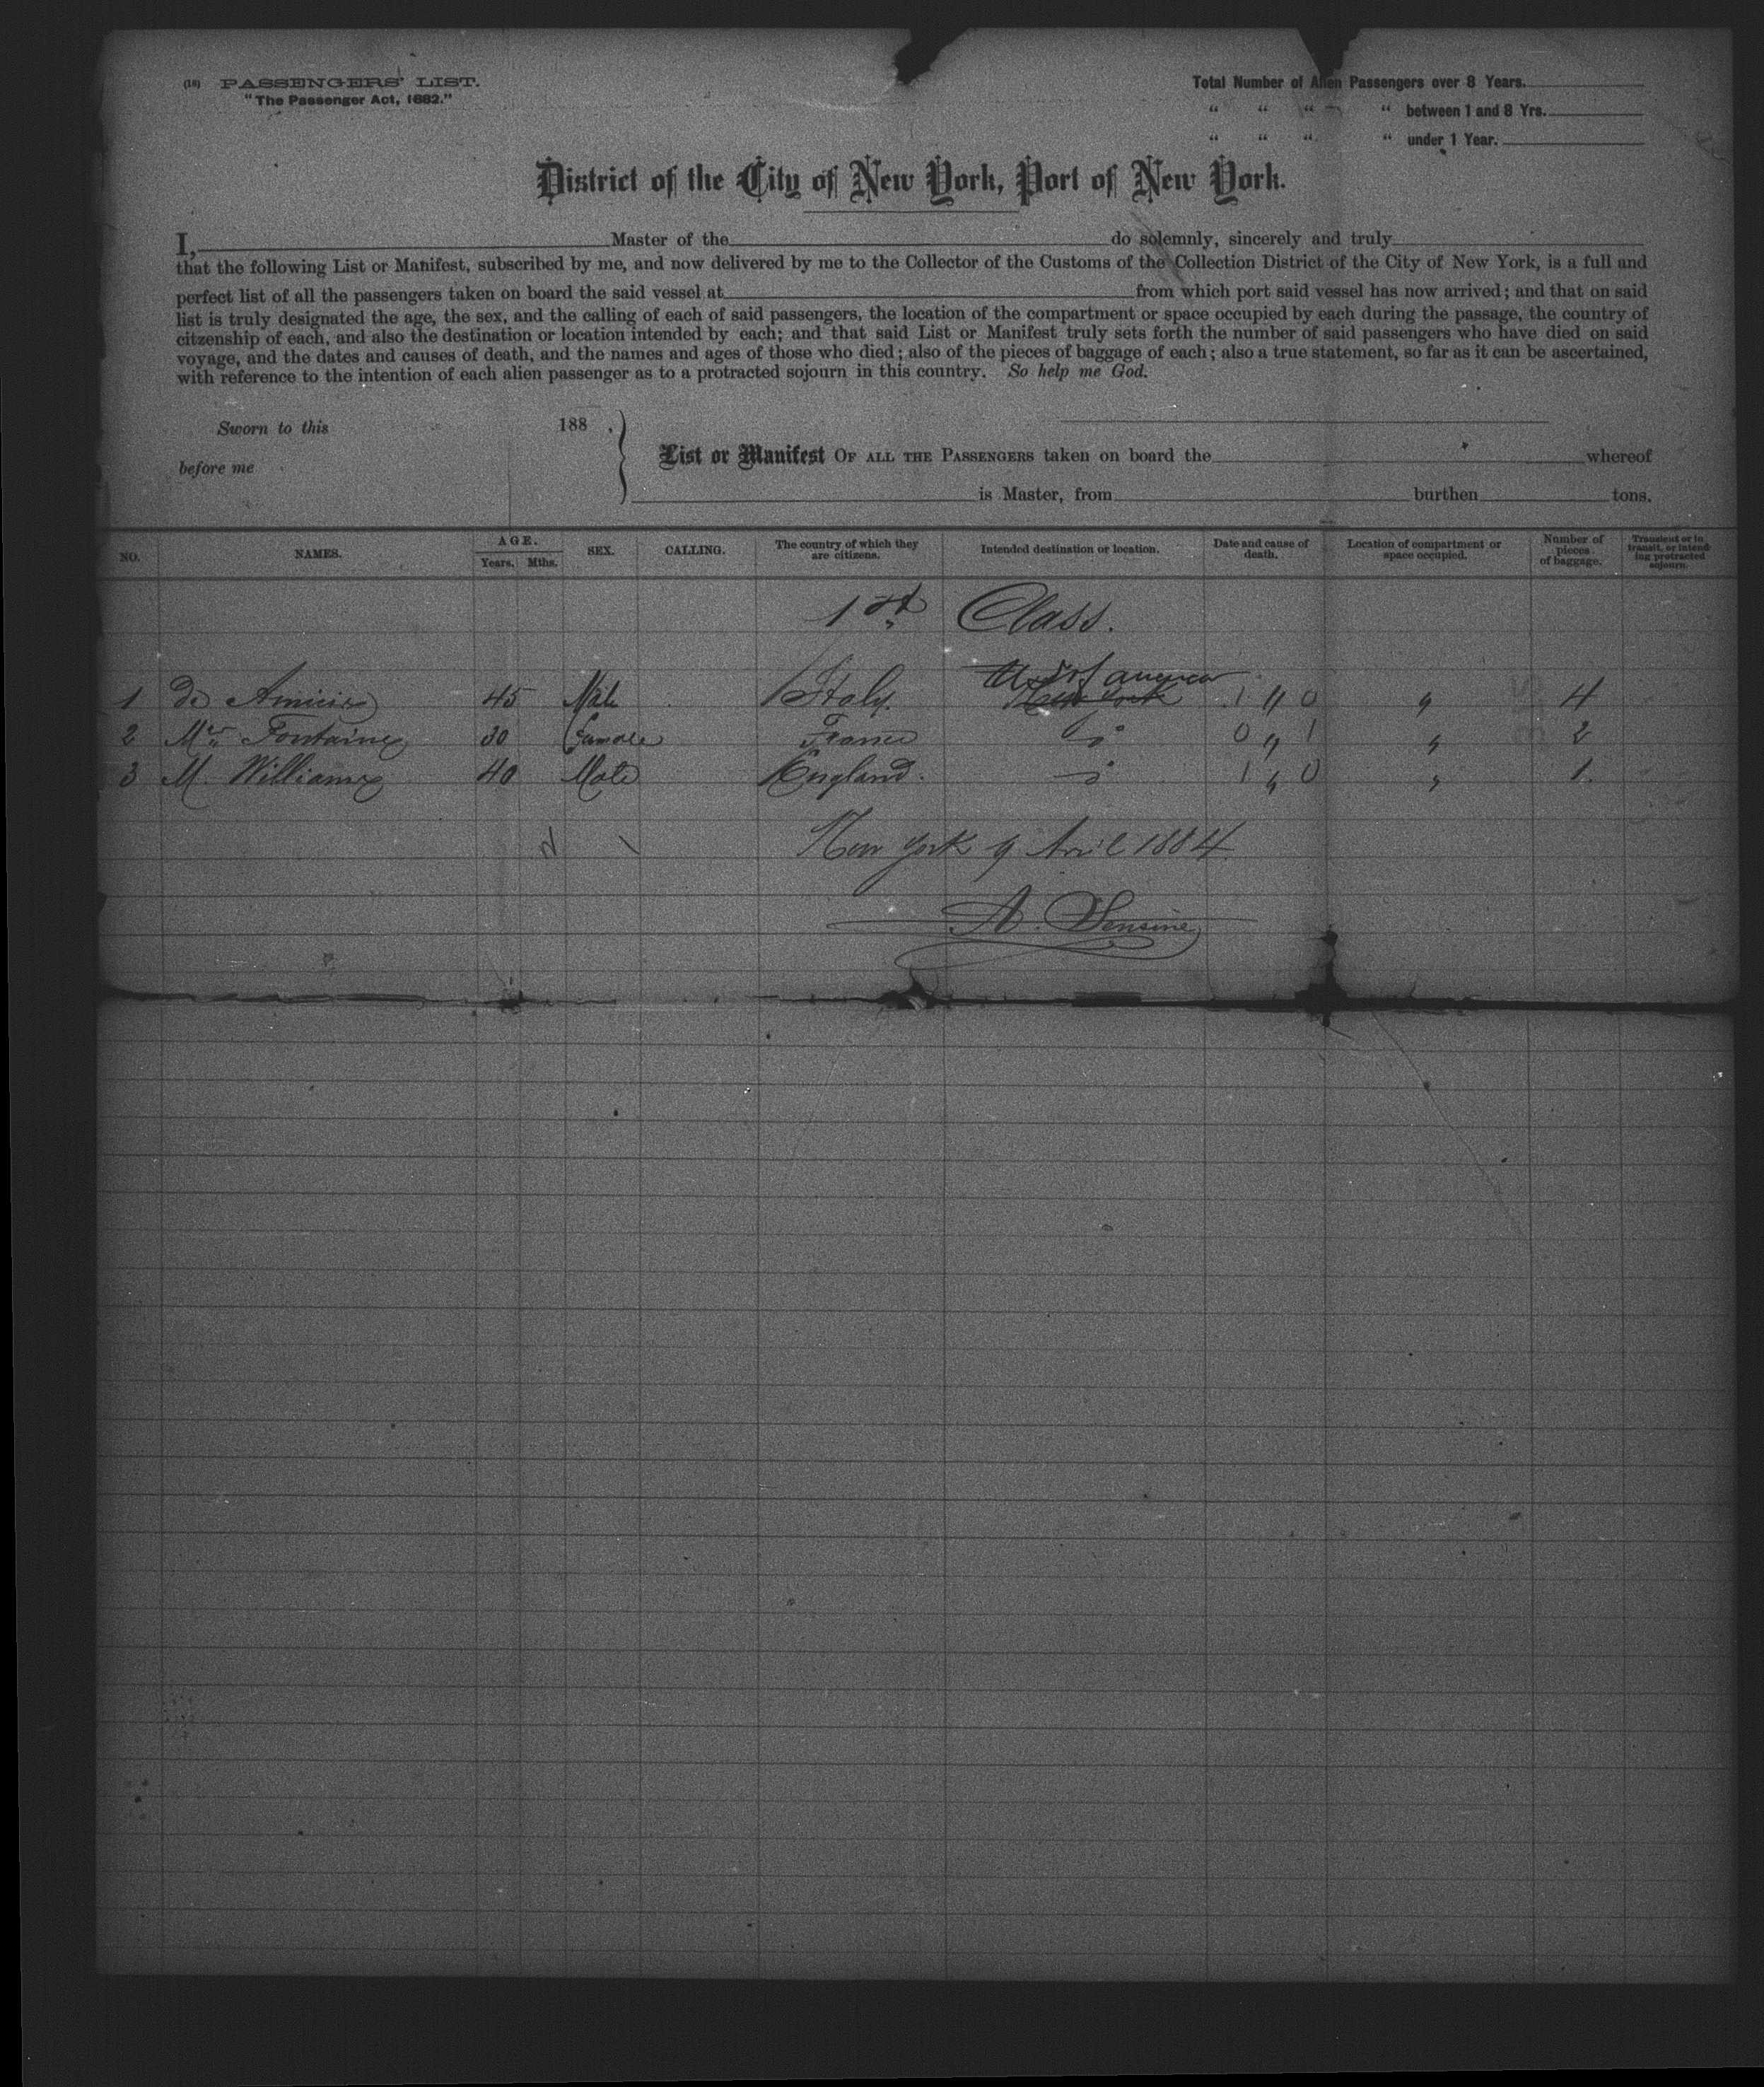 (18) PASSENGERS' LIST.
"The Passenger Act, 1882."
Total Number of Alien Passengers over 8 Years.
" " " " between 1 and 8 Yrs.
" " " " under 1 Year.
District of the City of New York, Port of New York.
I, Master of the do solemnly, sincerely and truly
that the following List or Manifest, subscribed by me, and now delivered by me to the Collector of the Customs of the Collection District of the City of New York, is a full and
perfect list of all the passengers taken on board the said vessel at from which port said vessel has now arrived; and that on said
list is truly designated the age, the sex, and the calling of each of said passengers, the location of the compartment or space occupied by each during the passage, the country of
citzenship of each, and also the destination or location intended by each; and that said List or Manifest truly sets forth the number of said passengers who have died on said
voyage, and the dates and causes of death, and the names and ages of those who died; also of the pieces of baggage of each; also a true statement, so far as it can be ascertained,
with reference to the intention of each alien passenger as to a protracted sojourn in this country. So help me God.
Sworn to this 188 .
before me
List or Manifest OF ALL THE PASSENGERS taken on board the whereof
is Master, from burthen tons.
NO. NAMES. AGE. Years. Mths. SEX. CALLING. The country of which they are citizens. Intended destination or location. Date and cause of death. Location of compartment or space occupied. Number of pieces of baggage. Transient or in transit, or intending protracted sojourn.
1st Class.
1 de Amicis 45 Male Italy. New York 1 " 0 " 4
2 Fontaine 30 France d° 0 " 1 " 2
3 M. Williams 40 Male England. d° 1 " 0 " 1.
New York 9 Avril 1884
A. Sensine